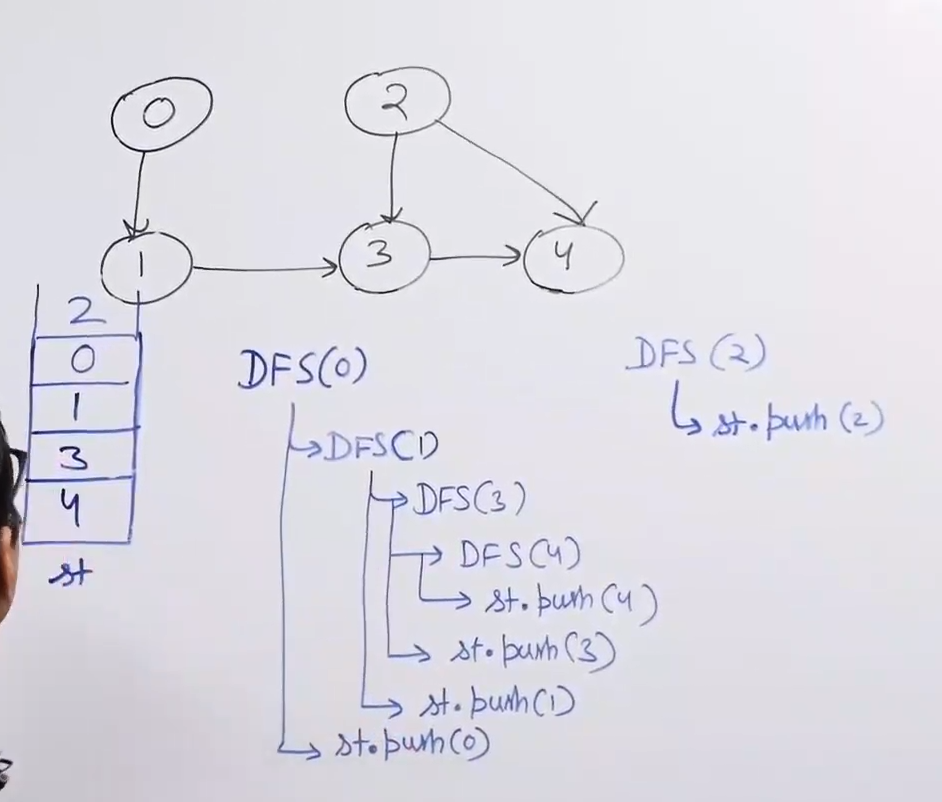 0
2
1
3
4
2
0
1
3
4
st
DFS(0)
DFS(1)
DFS(3)
DFS(4)
st.push(4)
st.push(3)
st.push(1)
st.push(0)
DFS(2)
st.push(2)